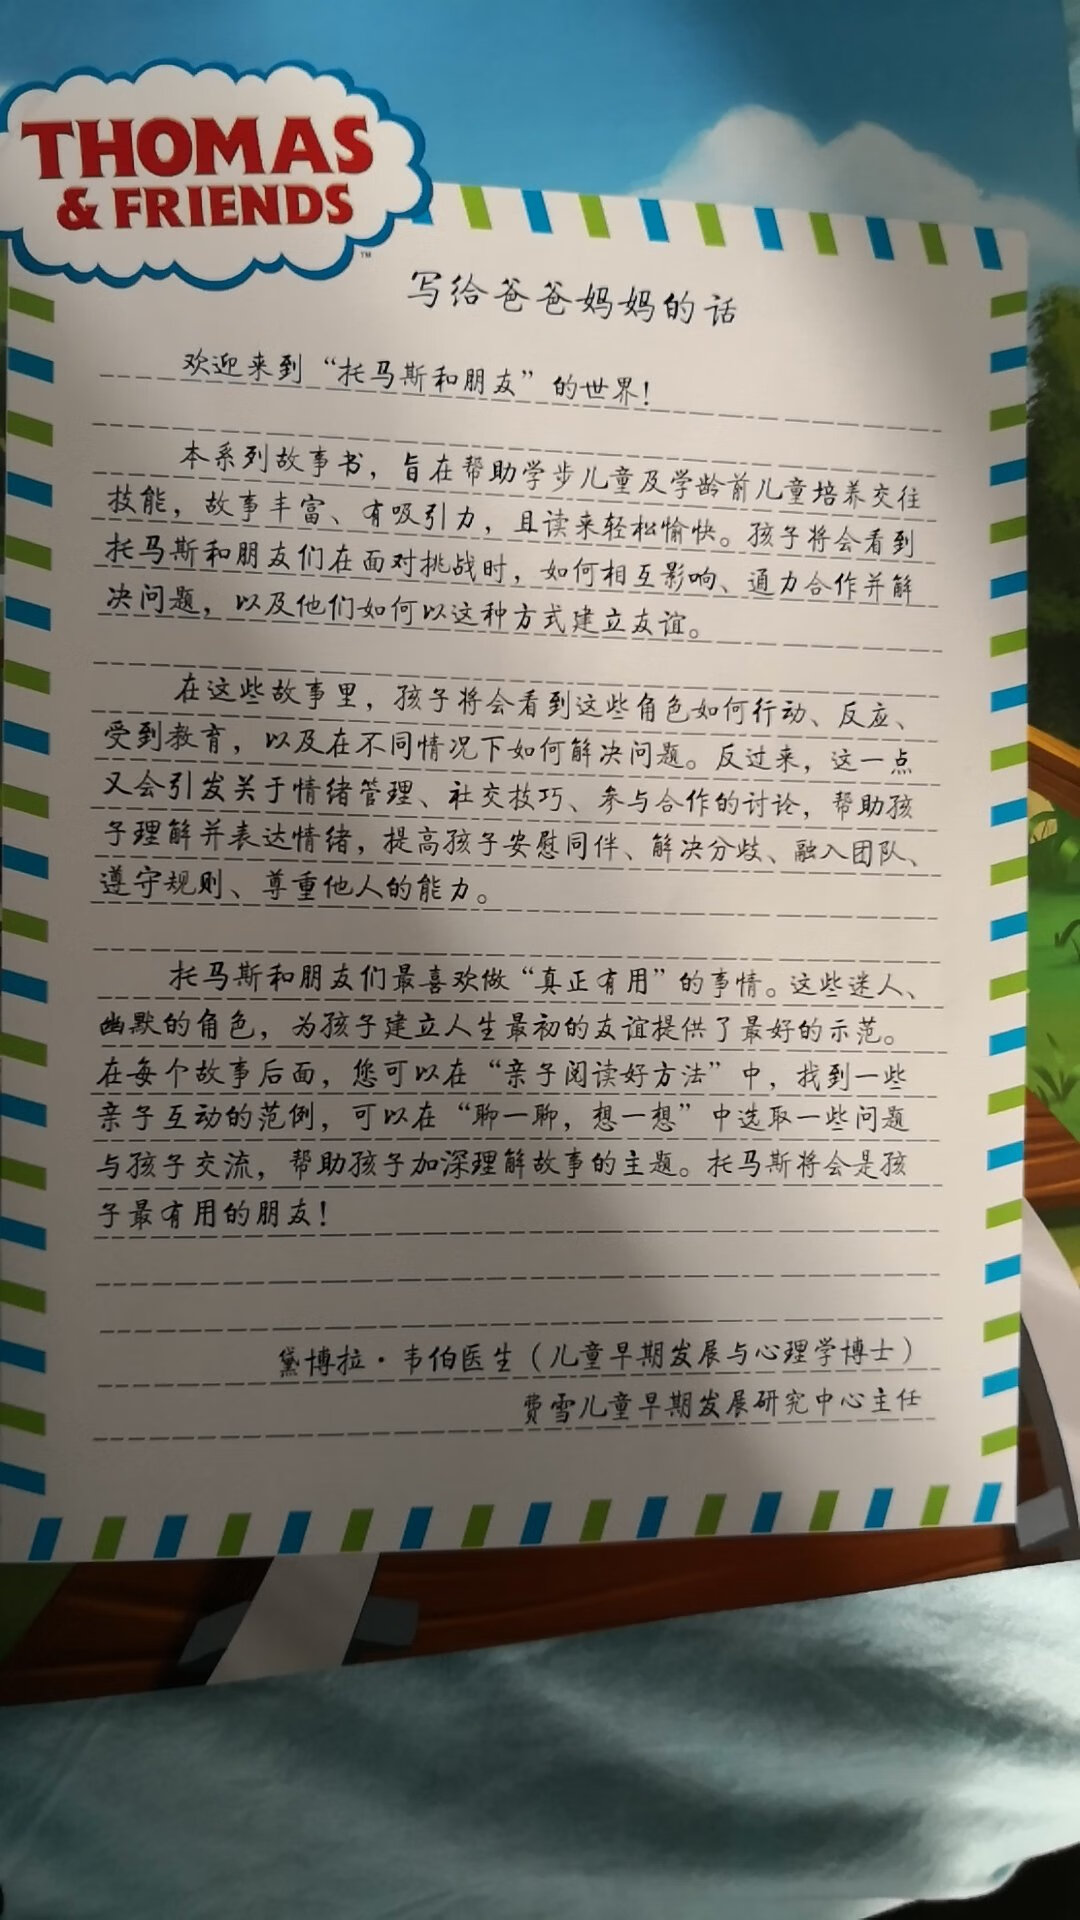 THOMAS
& FRIENDS
TM
写给爸爸妈妈的话
欢迎来到“托马斯和朋友”的世界！
本系列故事书，旨在帮助学步儿童及学龄前儿童培养交往
技能，故事丰富、有吸引力，且读来轻松愉快。孩子将会看到
托马斯和朋友们在面对挑战时，如何相互影响、通力合作并解
决问题，以及他们如何以这种方式建立友谊。
在这些故事里，孩子将会看到这些角色如何行动、反应、
受到教育，以及在不同情况下如何解决问题。反过来，这一点
又会引发关于情绪管理、社交技巧、参与合作的讨论，帮助孩
子理解并表达情绪，提高孩子安慰同伴、解决分歧、融入团队、
遵守规则、尊重他人的能力。
托马斯和朋友们最喜欢做“真正有用”的事情。这些迷人、
幽默的角色，为孩子建立人生最初的友谊提供了最好的示范。
在每个故事后面，您可以在“亲子阅读好方法”中，找到一些
亲子互动的范例，可以在“聊一聊，想一想”中选取一些问题
与孩子交流，帮助孩子加深理解故事的主题。托马斯将会是孩
子最有用的朋友！
黛博拉·韦伯医生（儿童早期发展与心理学博士）
费雪儿童早期发展研究中心主任